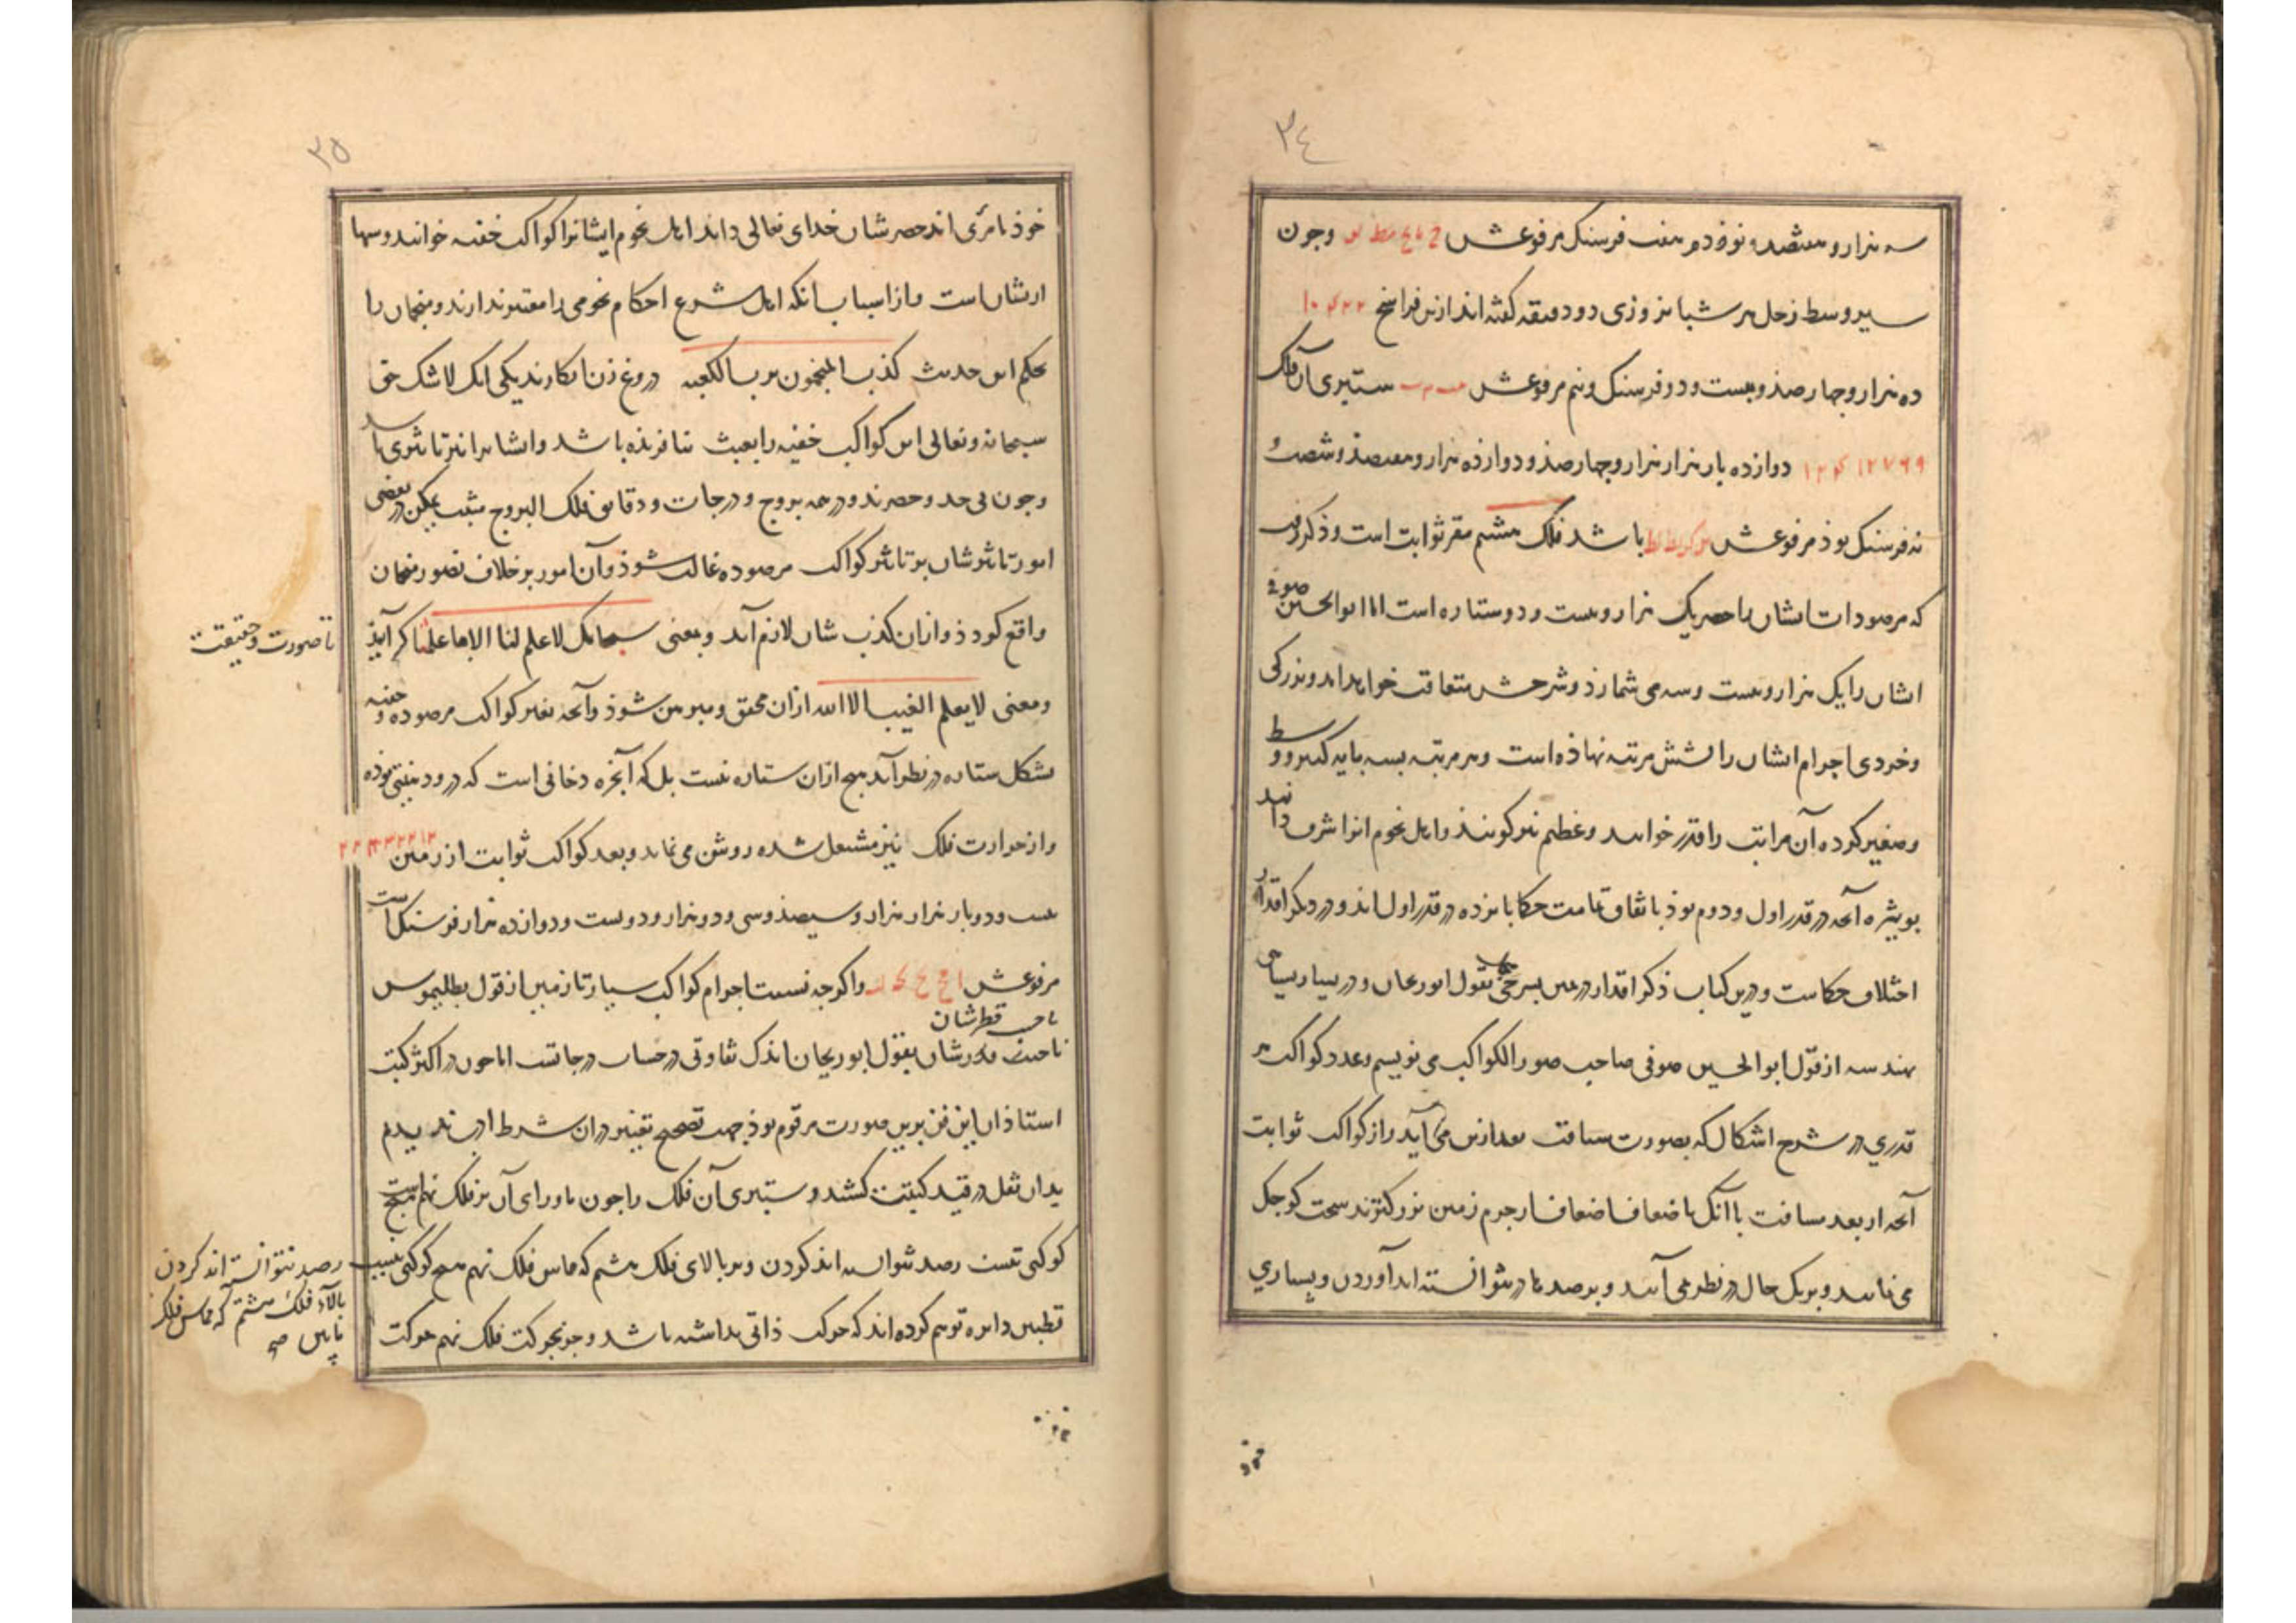 ۳٤
سه هزار و هفتصد و نود و هفت فرسنک مرفوعش وجون
سیر وسط زحل هر شبانروزی دو دقیقه کفته اند ازین فراسخ ۱۰۴۲۲
ده هزار و چهارصد و بیست و دو فرسنک و نیم مرفوعش ستبری آن فلک
۱۲۴۱۲۷۶۹ دوازده بار هزار هزار و چهارصد و دوازده هزار و هفتصد و شصت و
نه فرسنک بوذ مرفوعش باشد فلک هشتم مقر ثوابت است و ذکر رفت
که مرصودات ایشان را حصر یک هزار و بیست و دو ستاره است اما ابوالحسین صوفی
ایشان را یک هزار و بیست و سه می شمارذ و شرحش متعاقب خواهد امد و بزرکی
و خردی اجرام ایشان را بشش مرتبه نهاذه است و هر مرتبه بسه پایه کبیر و وسط
و صغیر کرده آن مراتب را قدر خوانند و عظم نیز کویند و اهل نجوم انرا شرف دانند
بویژه آنچه در قدر اول و دوم بوذ باتفاق تمامت حکما پانزده در قدر اول اند و در دیکر اقدار
اختلاف حکماست و درین کتاب ذکر اقدار در متن بسرخی بقول ابوریحان و در بسیار بسیاهی
بهندسه از قول ابوالحسین صوفی صاحب صور الکواکب می نویسم و عدد کواکب هر
قدری در شرح اشکال که بصورت سیاقت بعد ازین می آید و از کواکب ثوابت
آنچه از بعد مسافت باآنک باضعاف اضعاف از جرم زمین بزرکترند سخت کوجک
می نمایند و بریک حال در نظر می آیند و برصدها در نتوانسته اند آوردن و بسیاری
خود
۳۵
خوذ نامرئی اند حصرشان خدای تعالی داند اهل نجوم ایشانرا کواکب خفیه خوانند و سها
ازیشان است و از اسباب انکه اهل شرع احکام نجومی را معتبر ندارند و منجمان را
بحکم این حدیث کذب المنجمون برب الکعبه دروغ زن انکارند یکی انک لاشک حق
سبحانه و تعالی این کواکب خفیه را بعبث نیافریذه باشد و ایشانرا نیز تاثیری باشد
و جون بی حد و حصرند و در همه بروج و درجات و دقایق فلک البروج مثبت یمکن در بعضی
امور تاثیرشان بر تاثیر کواکب مرصوده غالب شوذ و آن امور برخلاف تصور منجمان
واقع کردذ و ازان کذب شان لازم آید و معنی سبحانک لا علم لنا الا ما علمتنا کر آیذ
تا صورت و حقیقت
و معنی لا یعلم الغیب الا الله ازان محقق و مبرهن شوذ و آنچه بغیر کواکب مرصوده و خفیه
بشکل ستاره در نظر آید هیج ازان ستاره نیست بل که آبخره دخانی است که درو دهنیتی بوده
و از حرارت فلک نیز مشتعل شده روشن می نماید و بعد کواکب ثوابت از زمین ۲۲۳۳۲۲۱۲
بیست و دو بار هزار هزار و سیصذ و سی و دو هزار و دویست و دوازده هزار فرسنک است
مرفوعش و اکرجه نسبت اجرام کواکب سیار تا زمین از قول بطلیموس
با حب قطرشان
تاحیت قدرشان بقول ابوریحان اندک تفاوتی در حساب درجاتست اما جون در اکثر کتب
استاذان این فن برین صورت مرقوم بوذ جهت تصحیح تغییر دران شرط ادب ندیدم
بدان نقل در قید کتبت کشند و ستبری آن فلک را جون ماورای آن بر فلک نهم است هیچ
کوکبی نیست رصد نتوانسته اند کردن و بر بالای فلک هشتم که مماس فلک نهم هیج کوکبی نیست
رصد نتوانسته اند کردن
بالاء فلک هشتم که مماس فلک
قطبین دایره توهم کرده اند که حرکت ذاتی نداشته باشد و جز بحرکت فلک نهم حرکت